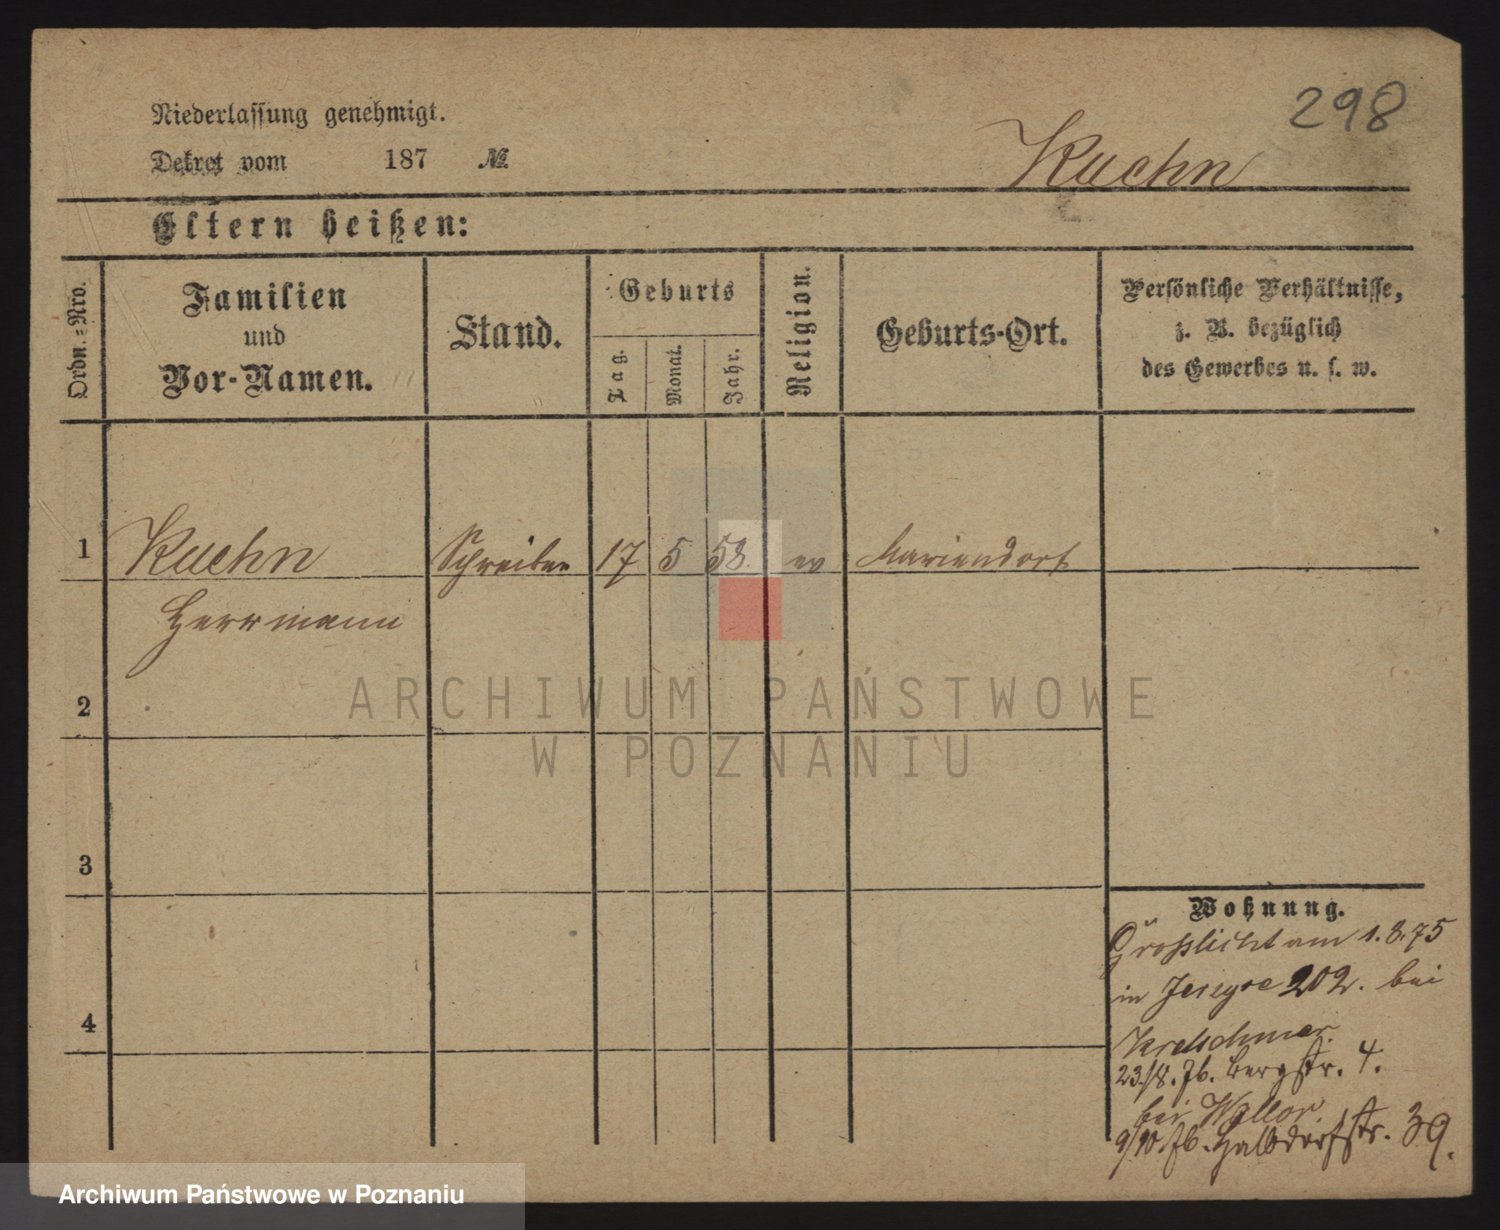 298
Niederlassung genehmigt.
Dekret vom 187 №
Kuehn
Eltern heißen:
Ordn.-Nro.
Familien
und
Vor-Namen.
Stand.
Geburts
Tag.
Monat.
Jahr.
Religion.
Geburts-Ort.
Persönliche Verhältnisse,
z. B. bezüglich
des Gewerbes u. s. w.
1 Kuehn Schreiber 17 5 58. ev Mariendorf
Herrmann
2
3
4
Wohnung.
am 1.8.75
in 202. bei
Kretschmer.
23/8. 76. Bergstr. 4.
bei
9/10. 76. Halbdorfstr. 39.
ARCHIWUM PAŃSTWOWE
W POZNANIU
Archiwum Państwowe w Poznaniu